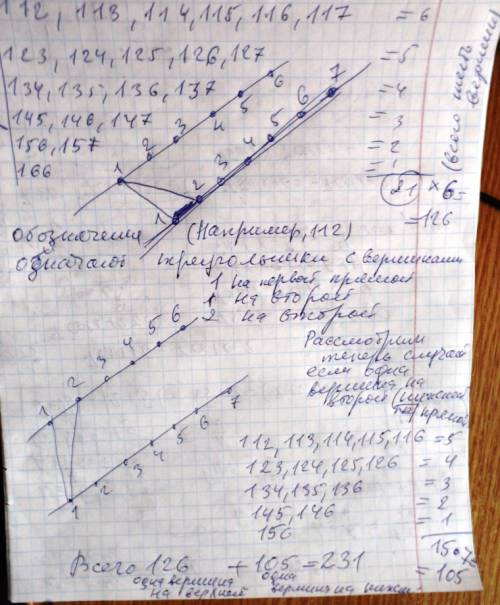 112, 113, 114, 115, 116, 117 = 6
123, 124, 125, 126, 127 = 5
134, 135, 136, 137 = 4
145, 146, 147 = 3
156, 157 = 2
166 = 1
21 × 6 =
= 126
(всего шесть вершин)
1 2 3 4 5 6
1 2 3 4 5 6 7
обозначения (Например, 112)
означают треугольники с вершинами
1 на первой прямой
1 на второй
2 на второй
1 2 3 4 5 6
1 2 3 4 5 6 7
Рассмотрим
теперь случай
если одна
вершина на
второй (нижней) прямой
112, 113, 114, 115, 116 = 5
123, 124, 125, 126 = 4
134, 135, 136 = 3
145, 146 = 2
156 = 1
15 · 7
= 105
Всего 126 + 105 = 231
одна вершина на верхней
одна вершина на нижн